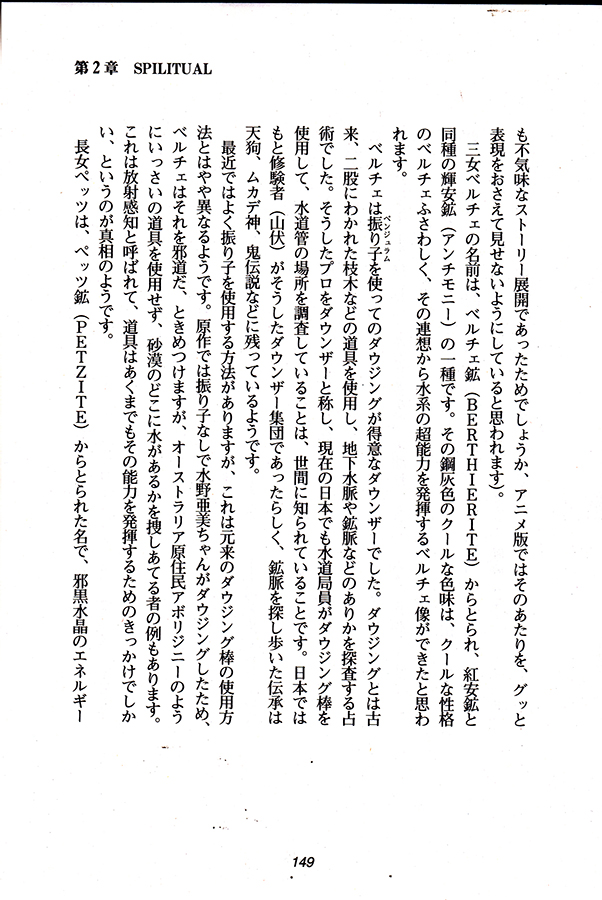 第2章 SPILITUAL
も不気味なストーリー展開であったためでしょうか、アニメ版ではそのあたりを、グッと
表現をおさえて見せないようにしていると思われます)。
三女ベルチェの名前は、ベルチェ鉱(BERTHIERITE)からとられ、紅安鉱と
同種の輝安鉱(アンチモニー)の一種です。その鋼灰色のクールな色味は、クールな性格
のベルチェふさわしく、その連想から水系の超能力を発揮するベルチェ像ができたと思わ
れます。
ベルチェは振り子を使ってのダウジングが得意なダウンザーでした。ダウジングとは古
ペンジュラム
来、二股にわかれた枝木などの道具を使用し、地下水脈や鉱脈などのありかを探査する占
術でした。そうしたプロをダウンザーと称し、現在の日本でも水道局員がダウジング棒を
使用して、水道管の場所を調査していることは、世間に知られていることです。日本では
もと修験者(山伏)がそうしたダウンザー集団であったらしく、鉱脈を探し歩いた伝承は
天狗、ムカデ神、鬼伝説などに残っているようです。
最近ではよく振り子を使用する方法がありますが、これは元来のダウジング棒の使用方
法とはやや異なるようです。原作では振り子なしで水野亜美ちゃんがダウジングしたため、
ベルチェはそれを邪道だ、ときめつけますが、オーストラリア原住民アボリジニーのよう
にいっさいの道具を使用せず、砂漠のどこに水があるかを捜しあてる者の例もあります。
これは放射感知と呼ばれて、道具はあくまでもその能力を発揮するためのきっかけでしか
い、というのが真相のようです。
長女ペッツは、ペッツ鉱(PETZITE)からとられた名で、邪黒水晶のエネルギー
149